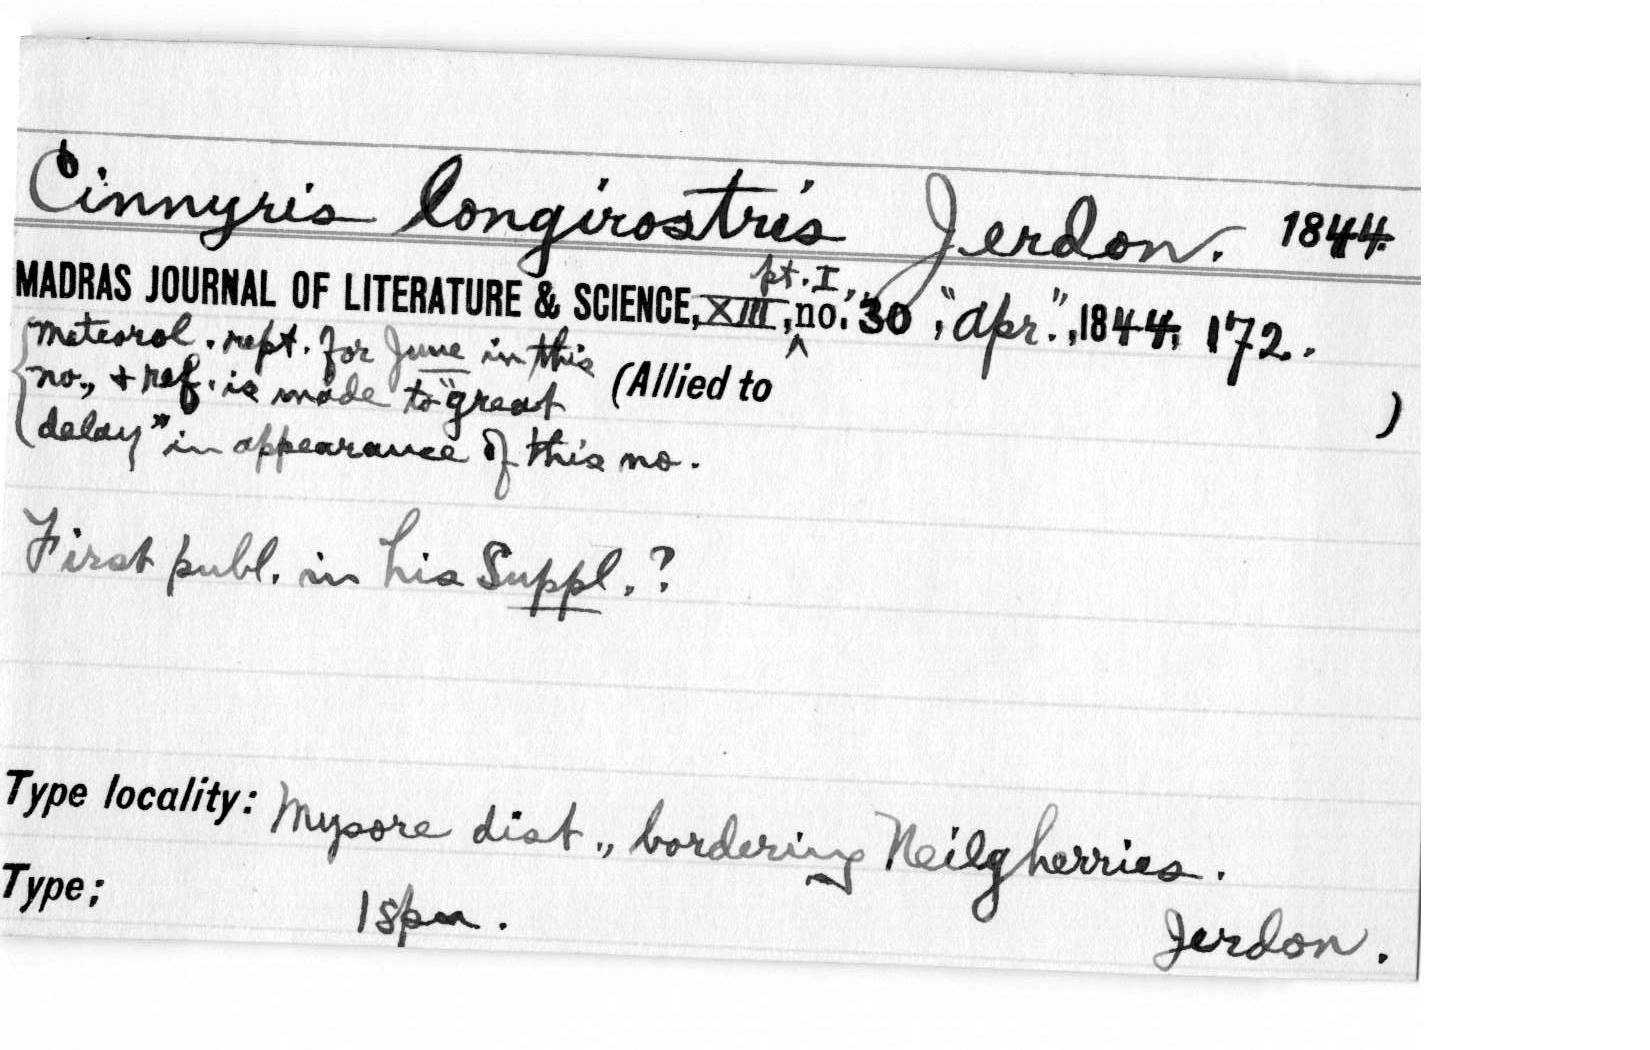 Cinnyris longirostris Jerdon. 1844.
MADRAS JOURNAL OF LITERATURE & SCIENCE, XIII, pt. I, no. 30, "Apr.", 1844, 172.
Meteorol. rept. for June in this
no., & ref. is made to "great
delay" in appearance of this no.
(Allied to )
First publ. in his Suppl.?
Type locality: Mysore dist., bordering Neilgherries.
Type; 1 spm. Jerdon.